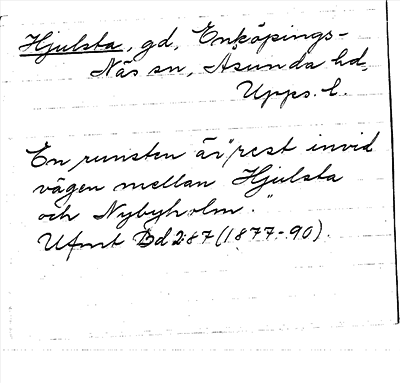 Hjulsta, gd, Enköpings-
Näs sn, Åsunda hd,
Upps. l.
En runsten är "rest invid
vägen mellan Hjulsta
och Nybyholm."
Ufmt Bd 2:87 (1877-90).